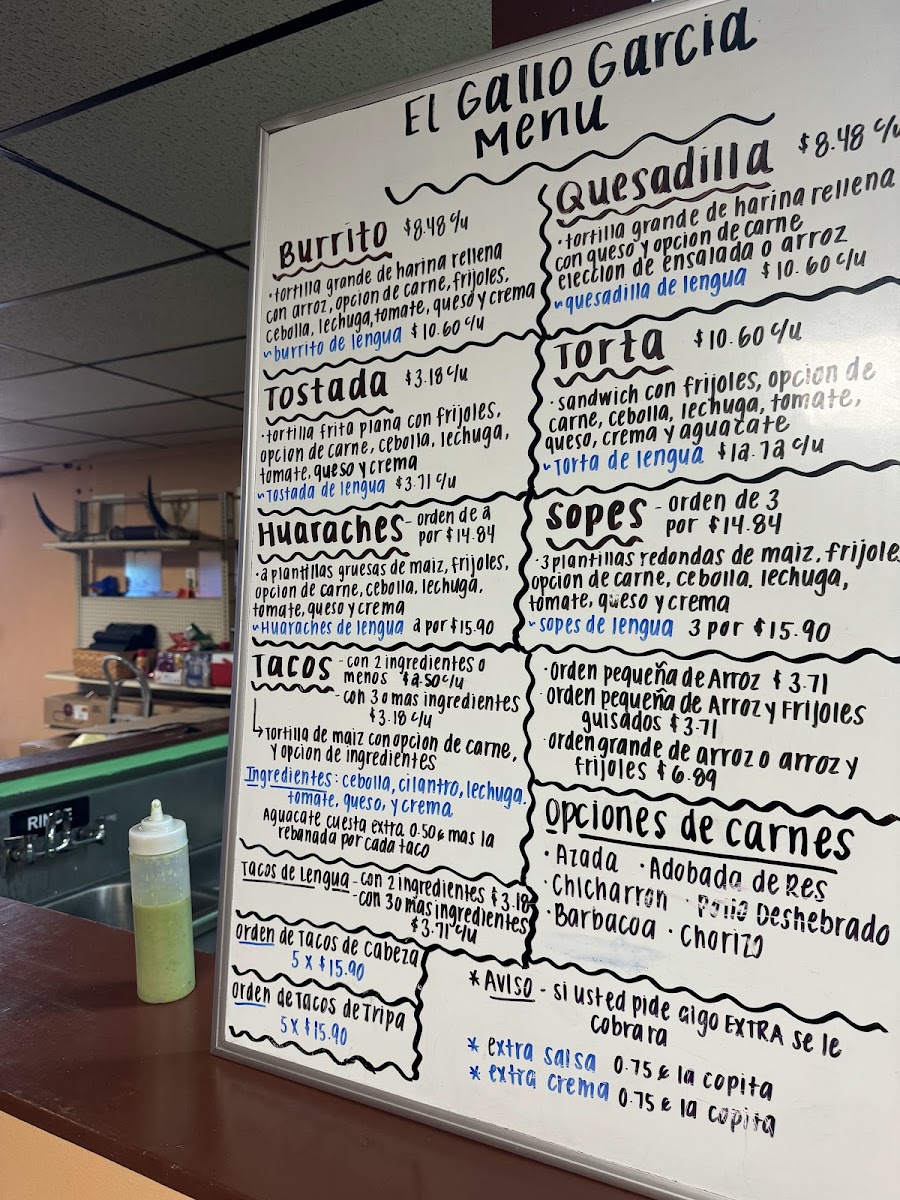 El Gallo Garcia
Menu
Burrito $8.48 c/u
·tortilla grande de harina rellena
con arroz, opcion de carne, frijoles,
cebolla, lechuga, tomate, queso y crema
~burrito de lengua $10.60 c/u
Quesadilla $8.48 c/u
·tortilla grande de harina rellena
con queso y opcion de carne
eleccion de ensalada o arroz
~quesadilla de lengua $10.60 c/u
Tostada $3.18 c/u
·tortilla frita plana con frijoles,
opcion de carne, cebolla, lechuga,
tomate, queso y crema
~Tostada de lengua $3.71 c/u
Torta $10.60 c/u
·sandwich con frijoles, opcion de
carne, cebolla, lechuga, tomate,
queso, crema y aguacate
~Torta de lengua $12.72 c/u
Huaraches - orden de 2
por $14.84
·2 plantillas gruesas de maiz, frijoles,
opcion de carne, cebolla, lechuga,
tomate, queso y crema
~Huaraches de lengua 2 por $15.90
Sopes - orden de 3
por $14.84
·3 plantillas redondas de maiz, frijoles
opcion de carne, cebolla, lechuga,
tomate, queso y crema
~sopes de lengua 3 por $15.90
Tacos - con 2 ingredientes o
menos $2.50 c/u
- con 3 o mas ingredientes
$3.18 c/u
Tortilla de maiz con opcion de carne,
y opcion de ingredientes
Ingredientes: cebolla, cilantro, lechuga,
tomate, queso, y crema
Aguacate cuesta extra 0.50¢ mas la
rebanada por cada taco
Tacos de Lengua - con 2 ingredientes $3.18
- con 3 o mas ingredientes
$3.71 c/u
Orden de Tacos de Cabeza
5 x $15.90
Orden de Tacos de Tripa
5 x $15.90
·orden pequeña de Arroz $3.71
·orden pequeña de Arroz y Frijoles
guisados $3.71
·orden grande de arroz o arroz y
frijoles $6.89
Opciones de carnes
·Azada ·Adobada de Res
·Chicharron ·Pollo Deshebrado
·Barbacoa ·Chorizo
*AVISO - si usted pide algo EXTRA se le
cobrara
* extra salsa 0.75¢ la copita
* extra crema 0.75¢ la copita